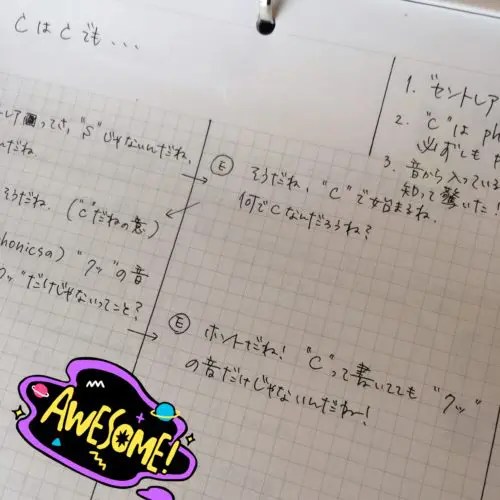 CはCでも...
レア ってさ, "S"じゃないんだね,
んだね.
そうだね. ("C"だねの意)
honicsa) "クッ"の音
クッ"だけじゃないってこと?
→ Ⓔ そうだね, "C"で始まるね.
何でCなんだろうね?
→ Ⓔ ホントだね! "C"って書いてても "クッ"
の音だけじゃないんだねー!
1. "セントレア
2. "C"は ph
必ずしも
3. 音から入っている
知って驚いた!
AWESOME!